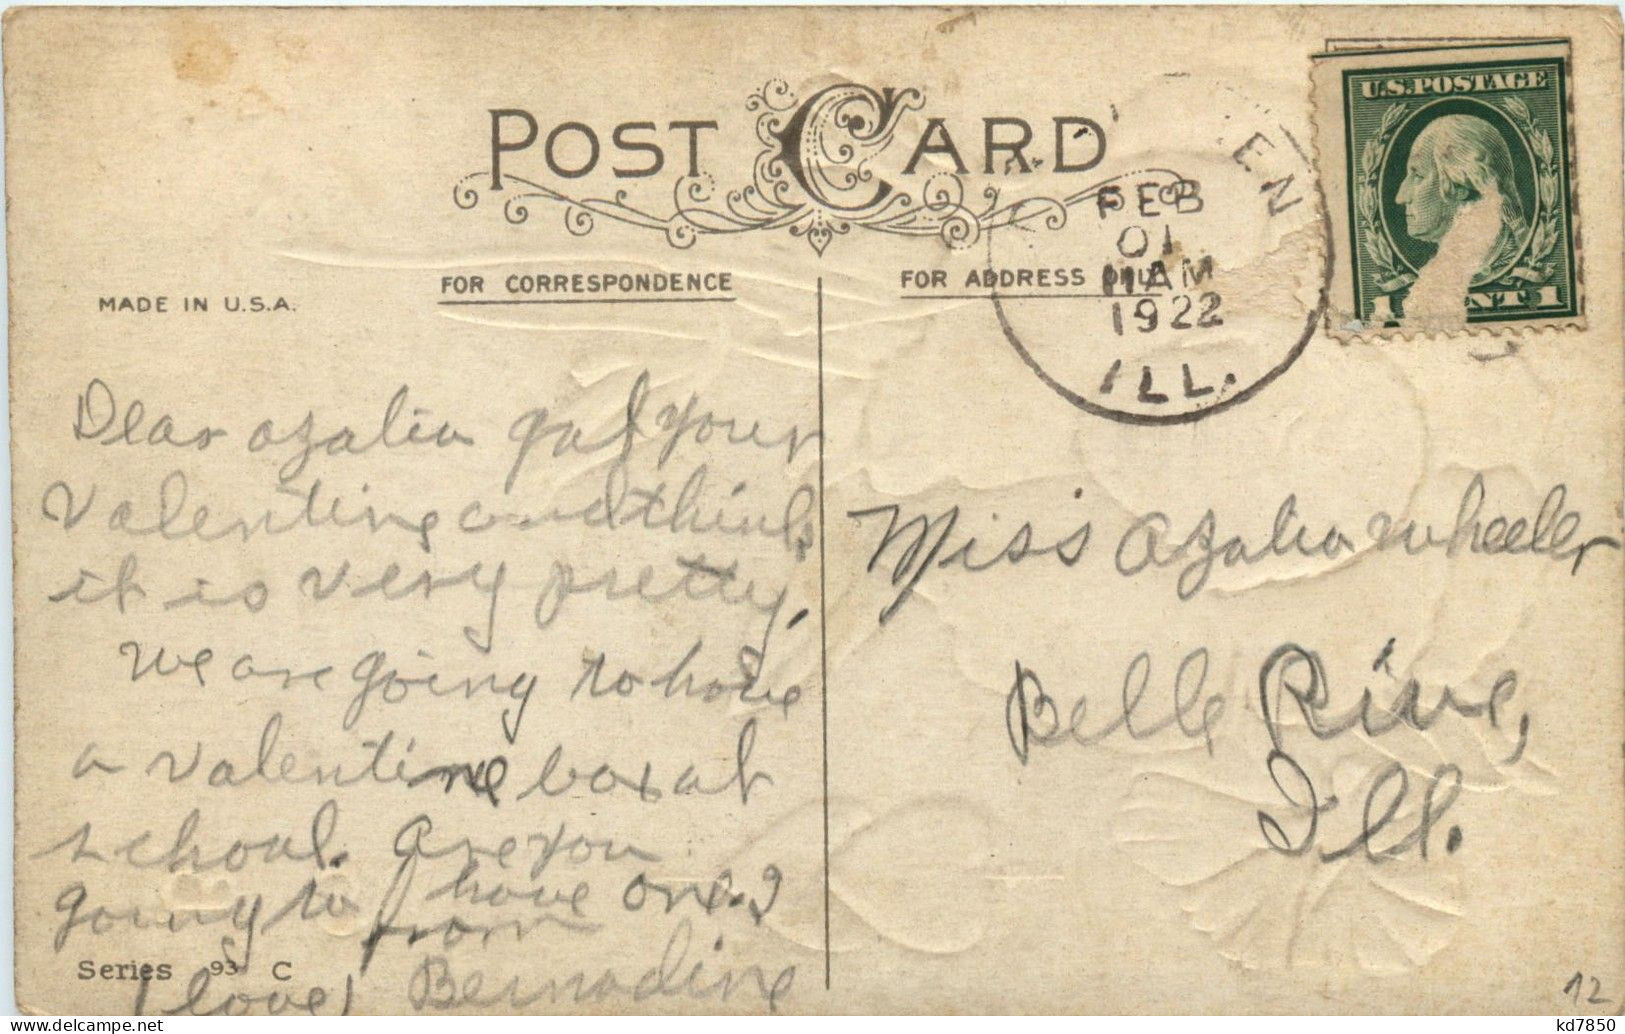 POST CARD
U.S. POSTAGE
EN
FEB
01
11 AM
1922
ILL.
FOR CORRESPONDENCE
FOR ADDRESS ONLY
MADE IN U.S.A.
Dear Azalia gat your
Valentine and think
it is very pretty,
we are going to have
a valentine box at
school. Are you
going to have one.?
from
(love) Bernadine
Series 93 C
Miss Azalia Wheeler
Belle Rive,
Ill.
12
kd7850